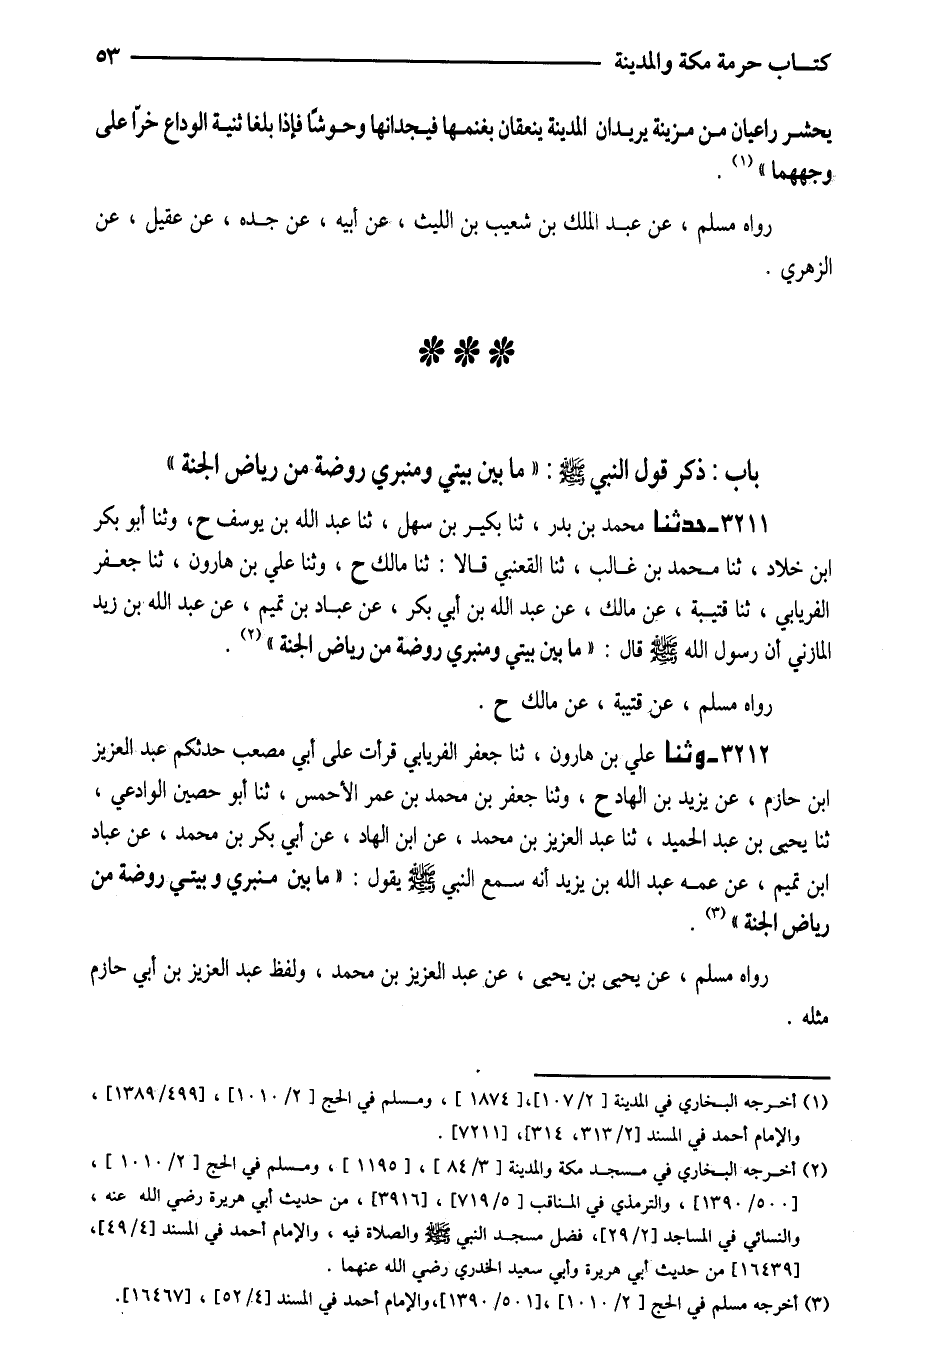 كتاب حرمة مكة والمدينة ٥٣
يحشر راعيان من مزينة يريدان المدينة ينعقان بغنمها فيجدانها وحوشًا فإذا بلغا ثنية الوداع خرّا على
وجههما » (١) .
رواه مسلم ، عن عبد الملك بن شعيب بن الليث ، عن أبيه ، عن جده ، عن عقيل ، عن
الزهري .
باب : ذكر قول النبي ﷺ : « ما بين بيتي ومنبري روضة من رياض الجنة »
٣٢١١ـ حدثنا محمد بن بدر ، ثنا بكير بن سهل ، ثنا عبد الله بن يوسف ح، وثنا أبو بكر
ابن خلاد ، ثنا محمد بن غالب ، ثنا القعنبي قالا : ثنا مالك ح ، وثنا علي بن هارون ، ثنا جعفر
الفريابي ، ثنا قتيبة ، عن مالك ، عن عبد الله بن أبي بكر ، عن عباد بن تميم ، عن عبد الله بن زيد
المازني أن رسول الله ﷺ قال : « ما بين بيتي ومنبري روضة من رياض الجنة » (٢) .
رواه مسلم ، عن قتيبة ، عن مالك ح .
٣٢١٢ـ وثنا علي بن هارون ، ثنا جعفر الفريابي قرأت على أبي مصعب حدثكم عبد العزيز
ابن حازم ، عن يزيد بن الهاد ح ، وثنا جعفر بن محمد بن عمر الأحمس ، ثنا أبو حصين الوادعي ،
ثنا يحيى بن عبد الحميد ، ثنا عبد العزيز بن محمد ، عن ابن الهاد ، عن أبي بكر بن محمد ، عن عباد
ابن تميم ، عن عمه عبد الله بن يزيد أنه سمع النبي ﷺ يقول : « ما بين منبري وبيتي روضة من
رياض الجنة » (٣) .
رواه مسلم ، عن يحيى بن يحيى ، عن عبد العزيز بن محمد ، ولفظ عبد العزيز بن أبي حازم
مثله .
(١) أخرجه البخاري في المدينة [ ١٠٧/٢]،[ ١٨٧٤ ] ، ومسلم في الحج [ ١٠١٠/٢] ، [١٣٨٩/٤٩٩] ،
والإمام أحمد في المسند [٣١٣/٢، ٣١٤]، [٧٢١١] .
(٢) أخرجه البخاري في مسجد مكة والمدينة [ ٨٤/٣ ] ، [ ١١٩٥ ] ، ومسلم في الحج [ ١٠١٠/٢ ] ،
[١٣٩٠/٥٠٠] ، والترمذي في المناقب [ ٧١٩/٥] ، [٣٩١٦] ، من حديث أبي هريرة رضي الله عنه ،
والنسائي في المساجد [٢٩/٢]، فضل مسجد النبي ﷺ والصلاة فيه ، والإمام أحمد في المسند [٤٩/٤]،
[١٦٤٣٩] من حديث أبي هريرة وأبي سعيد الخدري رضي الله عنهما .
(٣) أخرجه مسلم في الحج [ ١٠١٠/٢] ،[١٣٩٠/٥٠١]،والإمام أحمد في المسند [٥٢/٤] ، [١٦٤٦٧].